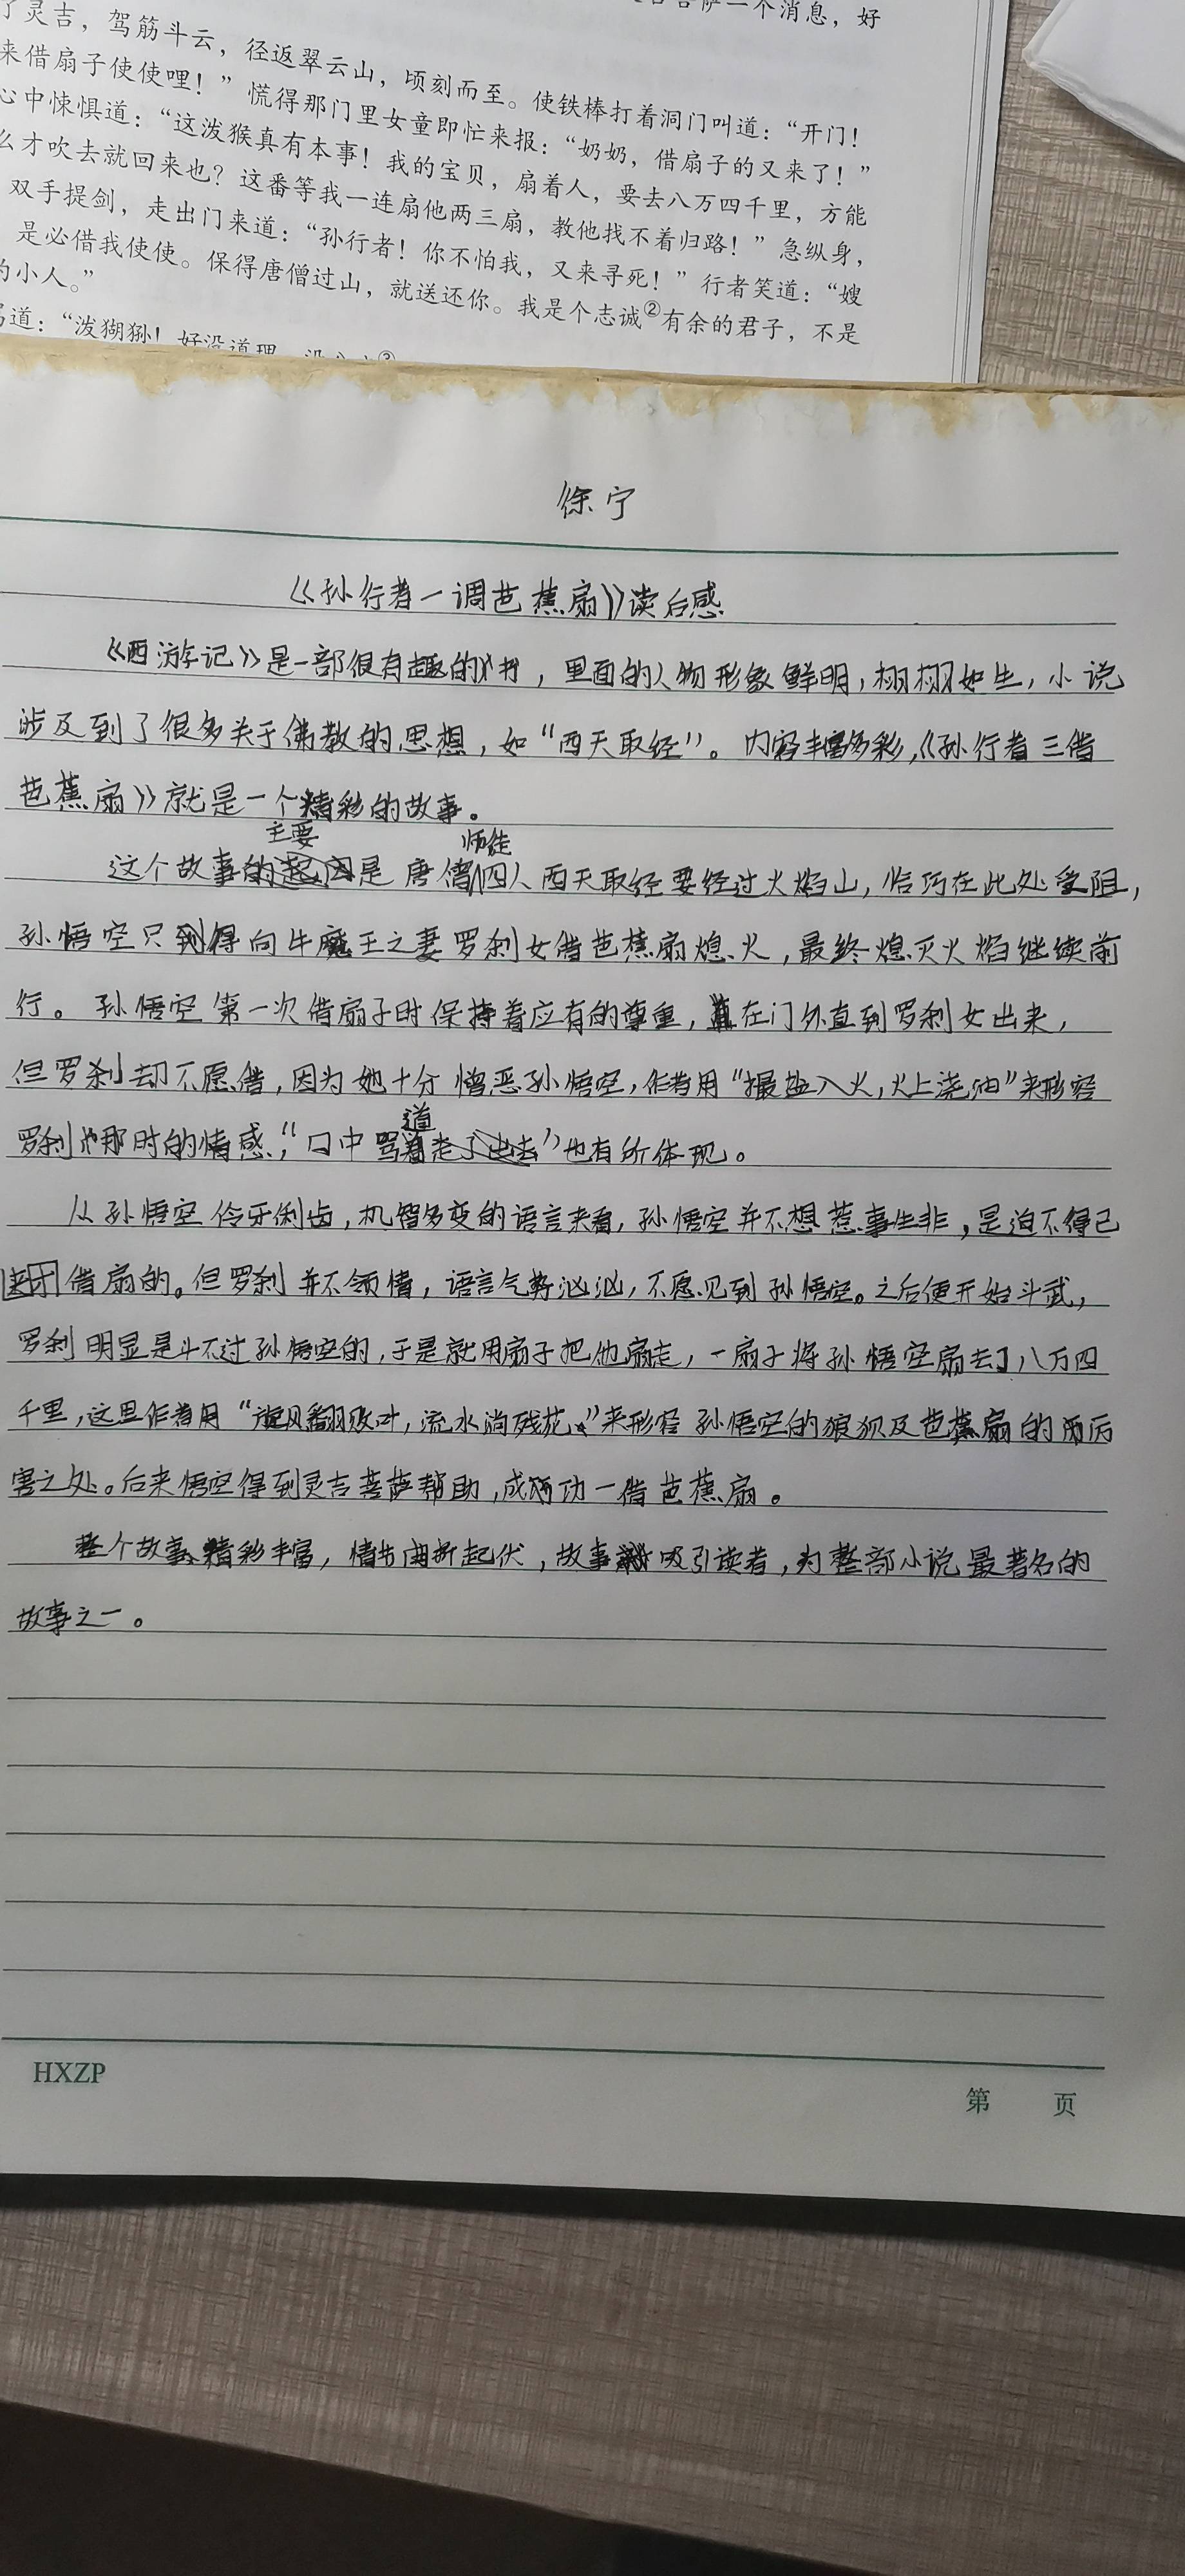 一个消息，好
了灵吉，驾筋斗云，径返翠云山，顷刻而至。使铁棒打着洞门叫道：“开门！
来借扇子使使哩！”慌得那门里女童即忙来报：“奶奶，借扇子的又来了！”
心中悚惧道：“这泼猴真有本事！我的宝贝，扇着人，要去八万四千里，方能
么才吹去就回来也？这番等我一连扇他两三扇，教他找不着归路！”急纵身，
双手提剑，走出门来道：“孙行者！你不怕我，又来寻死！”行者笑道：“嫂
是必借我使使。保得唐僧过山，就送还你。我是个志诚②有余的君子，不是
的小人。”
道：“泼猢狲！好没道理，没
徐宁
《孙行者一调芭蕉扇》读后感
《西游记》是一部很有趣的书，里面的人物形象鲜明，栩栩如生，小说
涉及到了很多关于佛教的思想，如“西天取经”。内容丰富多彩，《孙行者三借
芭蕉扇》就是一个精彩的故事。
这个故事的主要是唐僧师徒四人西天取经要经过火焰山，恰巧在此处受阻，
孙悟空只得向牛魔王之妻罗刹女借芭蕉扇熄火，最终熄灭火焰继续前
行。孙悟空第一次借扇子时保持着应有的尊重，在门外直到罗刹女出来，
但罗刹却不愿借，因为她十分憎恶孙悟空，作者用“撮盐入火，火上浇油”来形容
罗刹那时的情感，“口中骂道走了出去”也有所体现。
从孙悟空伶牙俐齿，机智多变的语言来看，孙悟空并不想惹事生非，是迫不得已
借扇的。但罗刹并不领情，语言气势汹汹，不愿见到孙悟空。之后便开始斗武，
罗刹明显是斗不过孙悟空的，于是就用扇子把他扇走，一扇子将孙悟空扇去了八万四
千里，这里作者用“旋风翻败叶，流水淌残花”来形容孙悟空的狼狈及芭蕉扇的厉
害之处。后来悟空得到灵吉菩萨帮助，成功一借芭蕉扇。
整个故事精彩丰富，情节曲折起伏，故事吸引读者，为整部小说最著名的
故事之一。
HXZP
第 页